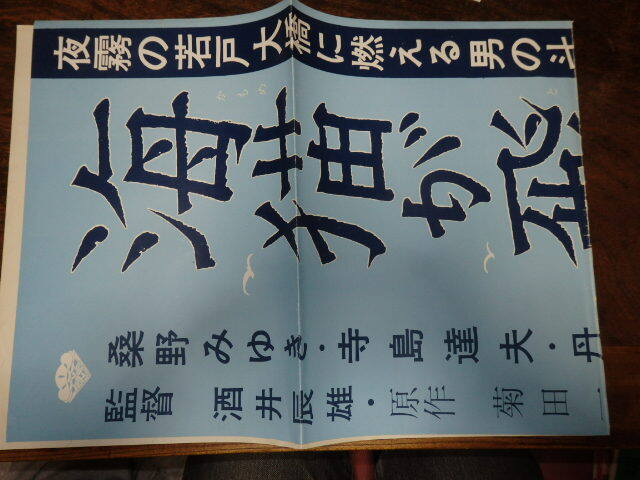 夜霧の若戸大橋に燃える男の斗
かもめ と
海猫が飛
桑野みゆき・寺島達夫・丹
監督 酒井辰雄・原作 菊田一